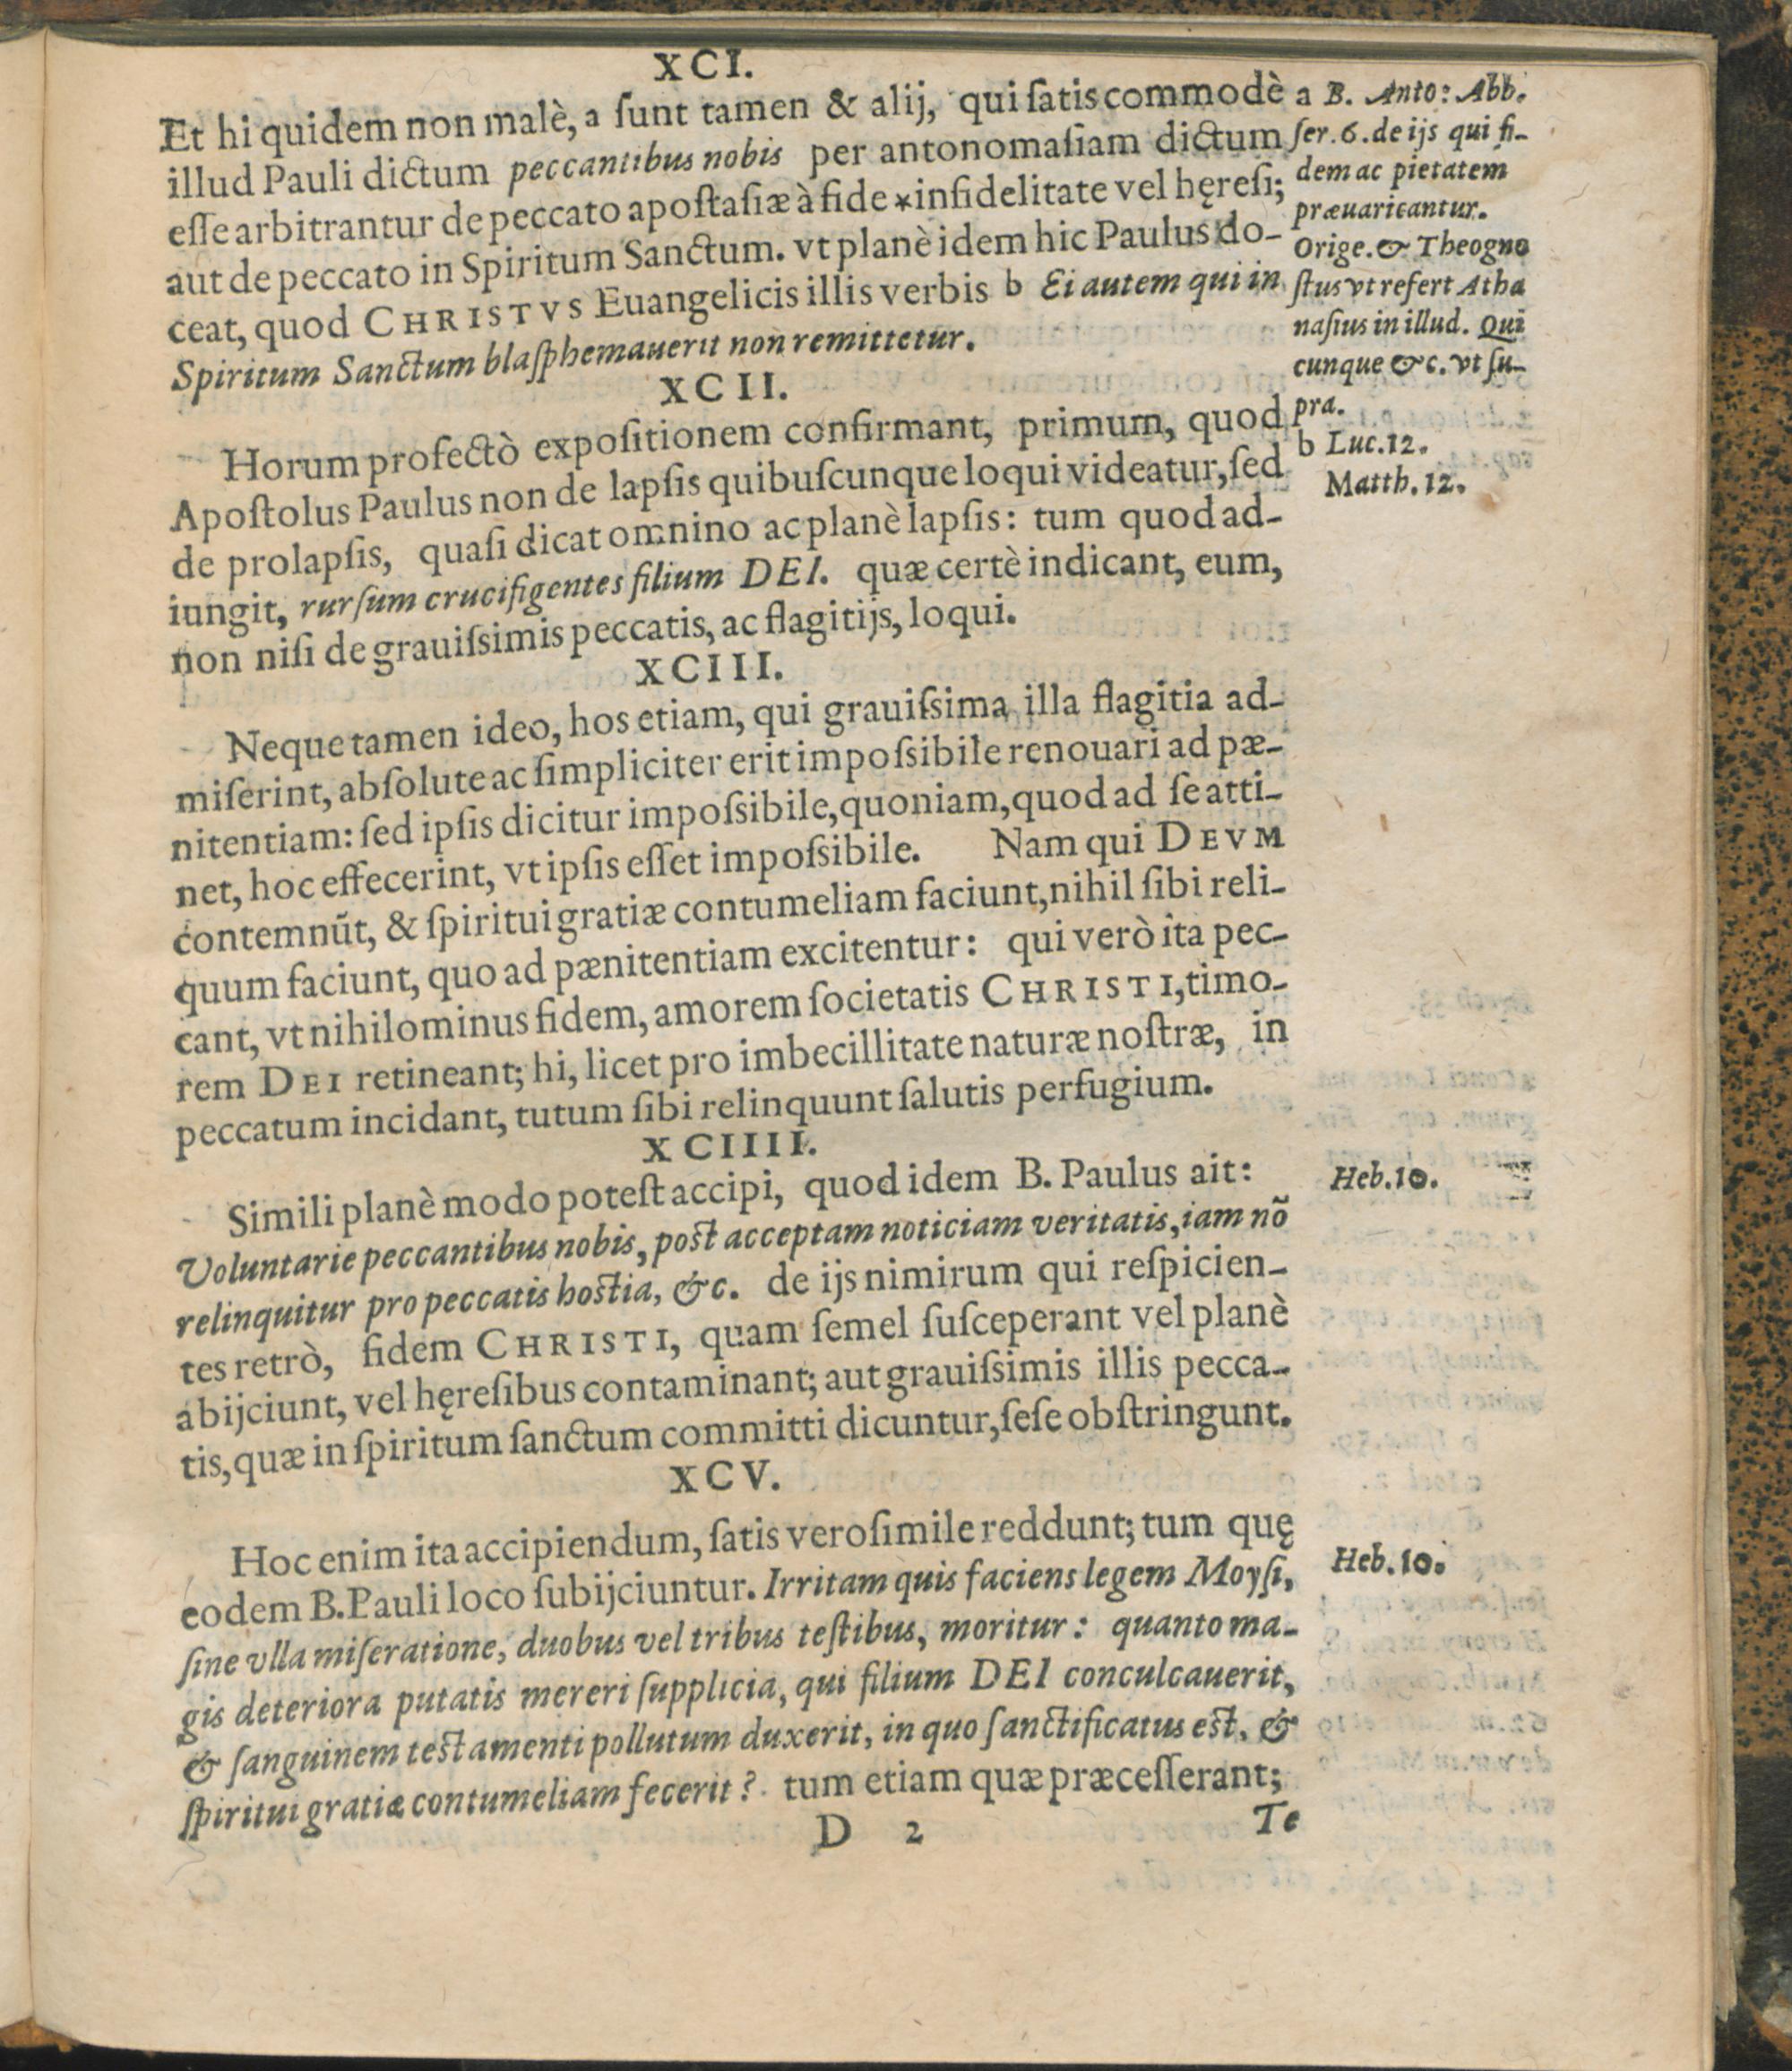 XCI.
Et hi quidem non malè, a sunt tamen & alij, qui satis commodè
illud Pauli dictum peccantibus nobis per antonomasiam dictum
esse arbitrantur de peccato apostasiæ à fide * infidelitate vel hęresi;
aut de peccato in Spiritum Sanctum. vt planè idem hic Paulus do-
ceat, quod CHRISTVS Euangelicis illis verbis b Ei autem qui in
Spiritum Sanctum blasphemauerit non remittetur.
a B. Anto: Abb.
ser. 6. de ijs qui fi-
dem ac pietatem
præuaricantur.
Orige. & Theogno
stus vt refert Atha
nasius in illud. Qui
cunque &c. vt su-
pra.
b Luc. 12.
Matth. 12.
XCII.
Horum profectò expositionem confirmant, primum, quod
Apostolus Paulus non de lapsis quibuscunque loqui videatur, sed
de prolapsis, quasi dicat omnino ac planè lapsis: tum quod ad-
iungit, rursum crucifigentes filium DEI. quæ certè indicant, eum,
non nisi de grauissimis peccatis, ac flagitijs, loqui.
XCIII.
Neque tamen ideo, hos etiam, qui grauissima illa flagitia ad-
miserint, absolute ac simpliciter erit impossibile renouari ad pæ-
nitentiam: sed ipsis dicitur impossibile, quoniam, quod ad se atti-
net, hoc effecerint, vt ipsis esset impossibile. Nam qui DEVM
contemnũt, & spiritui gratiæ contumeliam faciunt, nihil sibi reli-
quum faciunt, quo ad pænitentiam excitentur: qui verò ita pec-
cant, vt nihilominus fidem, amorem societatis CHRISTI, timo-
rem DEI retineant; hi, licet pro imbecillitate naturæ nostræ, in
peccatum incidant, tutum sibi relinquunt salutis perfugium.
XCIIII.
Simili planè modo potest accipi, quod idem B. Paulus ait:
Heb. 10.
Voluntarie peccantibus nobis, post acceptam noticiam veritatis, iam nõ
relinquitur pro peccatis hostia, &c. de ijs nimirum qui respicien-
tes retrò, fidem CHRISTI, quam semel susceperant vel planè
abijciunt, vel hęresibus contaminant; aut grauissimis illis pecca-
tis, quæ in spiritum sanctum committi dicuntur, sese obstringunt.
XCV.
Hoc enim ita accipiendum, satis verosimile reddunt; tum quę
Heb. 10.
eodem B. Pauli loco subijciuntur. Irritam quis faciens legem Moysi,
sine vlla miseratione, duobus vel tribus testibus, moritur: quanto ma-
gis deteriora putatis mereri supplicia, qui filium DEI conculcauerit,
& sanguinem testamenti pollutum duxerit, in quo sanctificatus est, &
spiritui gratiæ contumeliam fecerit? tum etiam quæ præcesserant;
D 2
Te